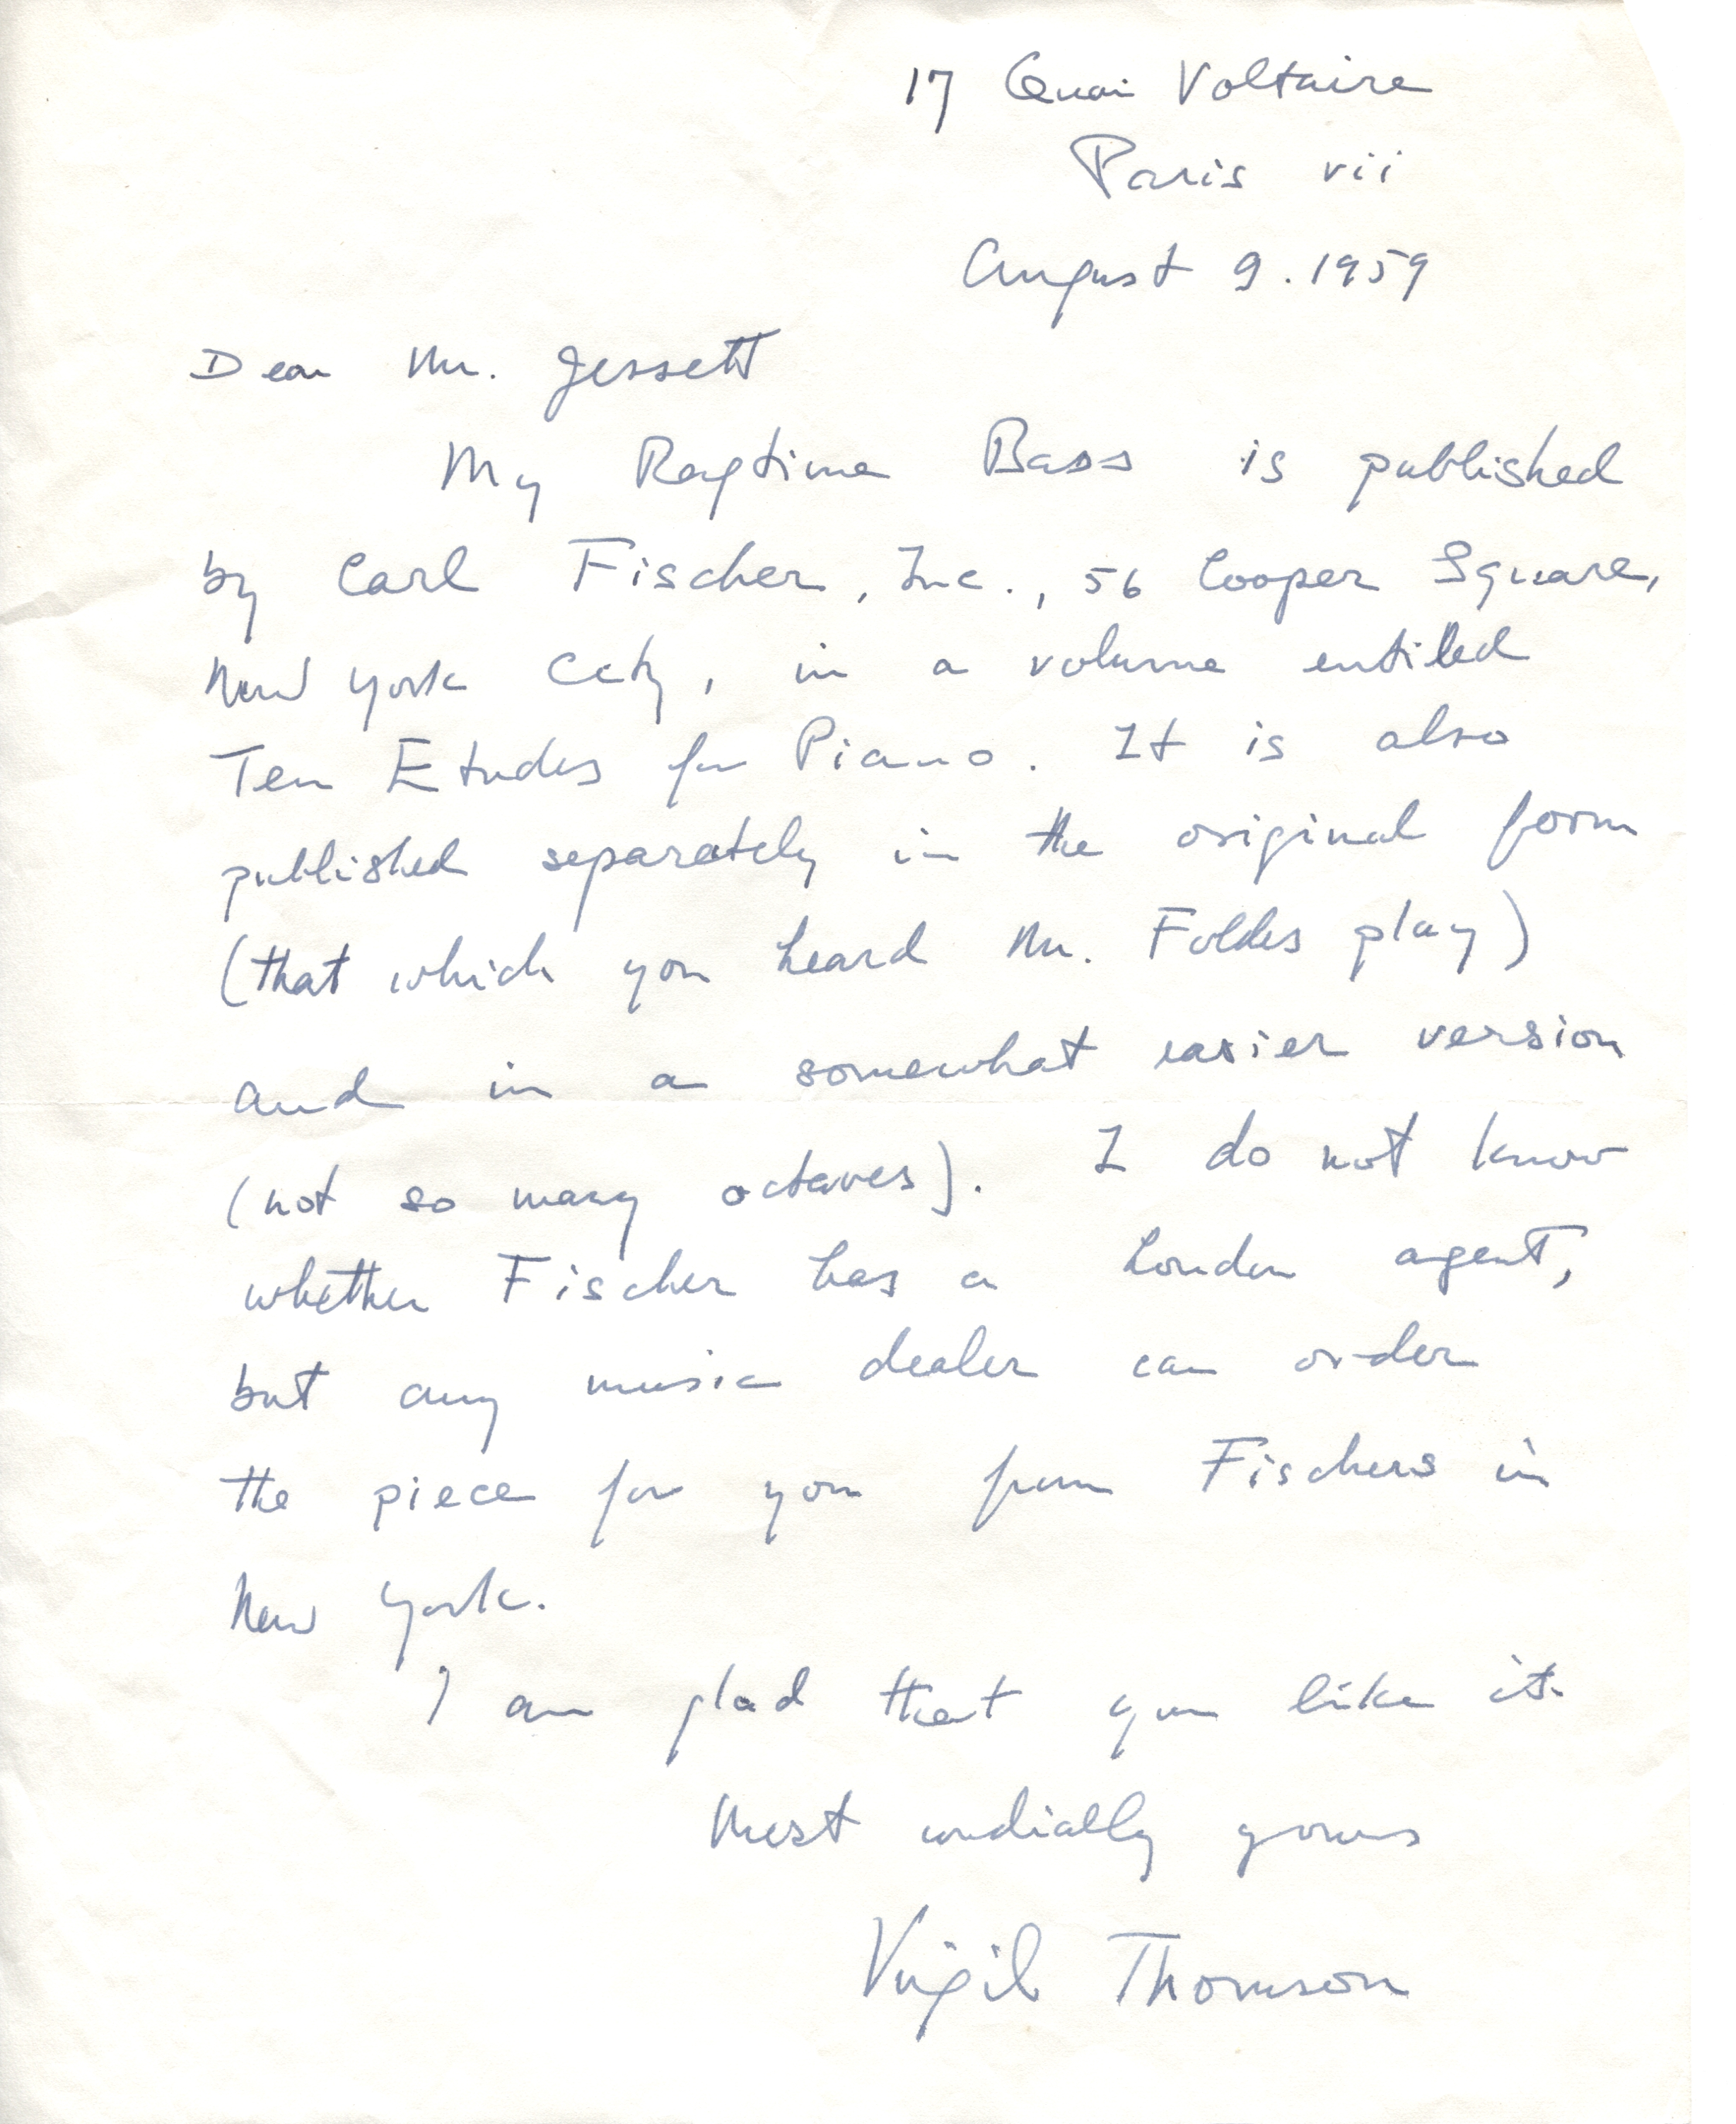 17 Quai Voltaire
Paris vii
August 9. 1959
Dear Mr. Jessett
My Ragtime Bass is published
by Carl Fischer, Inc., 56 Cooper Square,
New York City, in a volume entitled
Ten Etudes for Piano. It is also
published separately in the original form
(that which you heard Mr. Foldes play)
and in a somewhat easier version
(not so many octaves). I do not know
whether Fischer has a London agent,
but any music dealer can order
the piece for you from Fischers in
New York.
I am glad that you like it.
Most cordially yours
Virgil Thomson